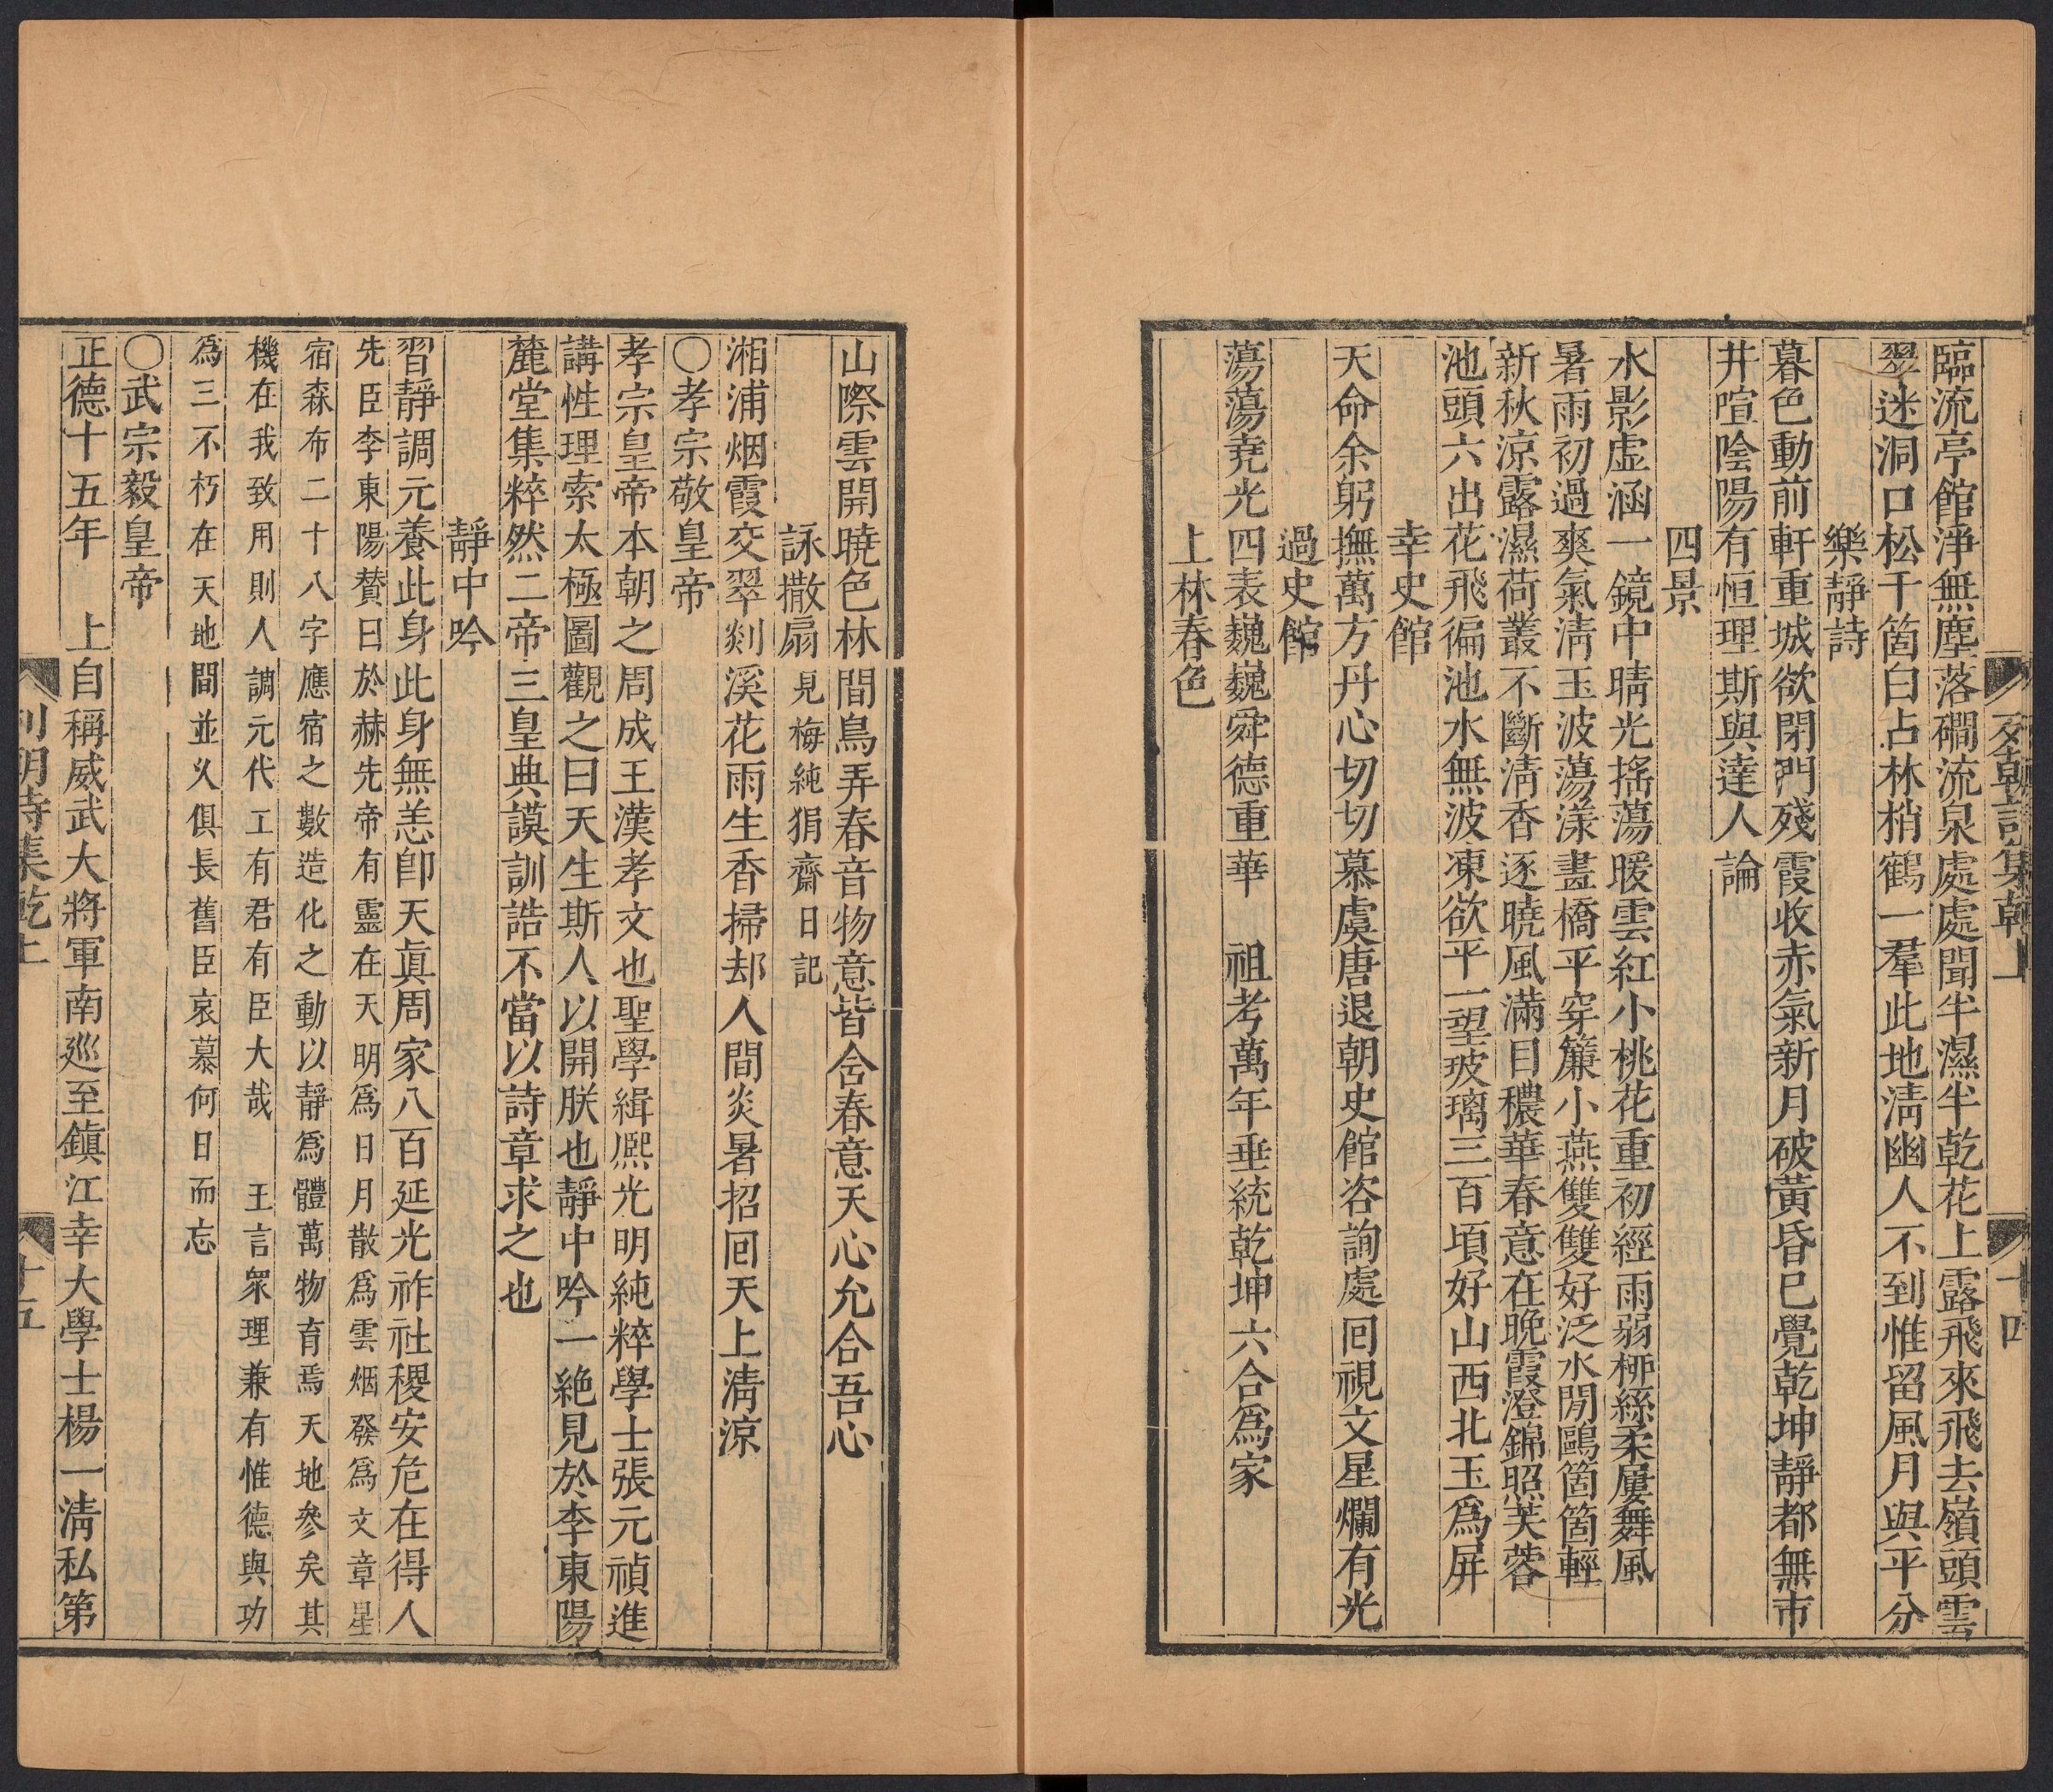 臨流亭館淨無塵落磵流泉處處聞半濕半乾花上露飛來飛去嶺頭雲
翠迷洞口松千箇白占林梢鶴一羣此地淸幽人不到惟留風月與平分
樂靜詩
暮色動前軒重城欲閉門殘霞收赤氣新月破黃昏巳覺乾坤靜都無市
井喧陰陽有恒理斯與達人論
四景
水影虛涵一鏡中晴光搖蕩暖雲紅小桃花重初經雨弱栁絲柔屢舞風
暑雨初過爽氣淸玉波蕩漾畫橋平穿簾小燕雙雙好泛水閒鷗箇箇輕
新秋凉露濕荷叢不斷淸香逐曉風滿目穠華春意在晩霞澄錦照芙蓉
池頭六出花飛徧池水無波凍欲平一望玻璃三百頃好山西北玉爲屏
幸史館
天命余躬撫萬方丹心切切慕虞唐退朝史館咨詢處囘視文星爛有光
過史館
蕩蕩堯光四表巍巍舜德重華　祖考萬年垂統乾坤六合爲家
上林春色
列朝詩集乾上
十四
山際雲開曉色林間鳥弄春音物意皆含春意天心允合吾心
詠撒扇 見梅純狷齋日記
湘浦烟霞交翠剡溪花雨生香掃却人間炎暑招囘天上淸凉
〇孝宗敬皇帝
孝宗皇帝本朝之周成王漢孝文也聖學緝熈光明純粹學士張元禎進
講性理索太極圖觀之曰天生斯人以開朕也靜中吟一絶見於李東陽
麓堂集粹然二帝三皇典謨訓誥不當以詩章求之也
靜中吟
習靜調元養此身此身無恙卽天眞周家八百延光祚社稷安危在得人
先臣李東陽賛曰於赫先帝有靈在天明爲日月散爲雲烟發爲文章星
宿森布二十八字應宿之數造化之動以靜爲體萬物育焉天地參矣其
機在我致用則人調元代工有君有臣大哉　王言衆理兼有惟德與功
爲三不朽在天地間並乆俱長舊臣哀慕何日而忘
〇武宗毅皇帝
正德十五年　上自稱威武大將軍南廵至鎭江幸大學士楊一淸私第
列朝詩集乾上
十五